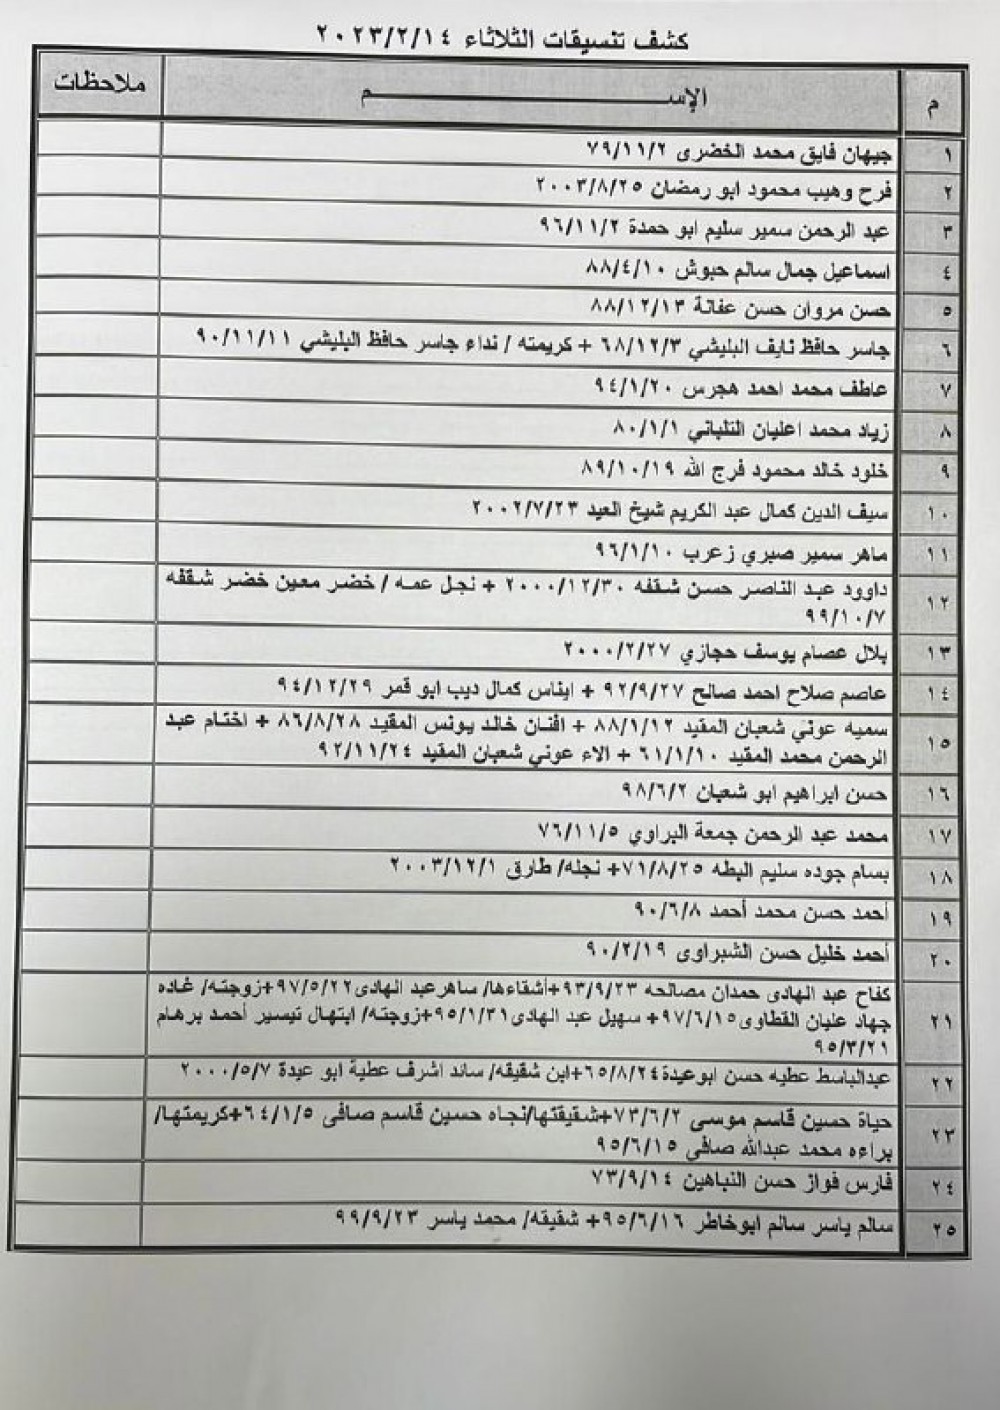 كشف تنسيقات الثلاثاء ٢٠٢٣/٢/١٤
م الإســـم ملاحظات
١ جيهان فايق محمد الخضرى ٧٩/١١/٢
٢ فرح وهيب محمود ابو رمضان ٢٠٠٣/٨/٢٥
٣ عبد الرحمن سمير سليم ابو حمدة ٩٦/١١/٢
٤ اسماعيل جمال سالم حبوش ٨٨/٤/١٠
٥ حسن مروان حسن عفانة ٨٨/١٢/١٣
٦ جاسر حافظ نايف البليشي ٦٨/١٢/٣ + كريمته / نداء جاسر حافظ البليشي ٩٠/١١/١١
٧ عاطف محمد احمد هجرس ٩٤/١/٢٠
٨ زياد محمد اعليان التلباني ٨٠/١/١
٩ خلود خالد محمود فرج الله ٨٩/١٠/١٩
١٠ سيف الدين كمال عبد الكريم شيخ العيد ٢٠٠٢/٧/٢٣
١١ ماهر سمير صبري زعرب ٩٦/١/١٠
١٢ داوود عبد الناصر حسن شقفه ٢٠٠٠/١٢/٣٠ + نجل عمه / خضر معين خضر شقفه
٩٩/١٠/٧
١٣ بلال عصام يوسف حجازي ٢٠٠٠/٢/٢٧
١٤ عاصم صلاح احمد صالح ٩٢/٩/٢٧ + ايناس كمال ديب ابو قمر ٩٤/١٢/٢٩
١٥ سميه عوني شعبان المقيد ٨٨/١/١٢ + افنان خالد يونس المقيد ٨٦/٨/٢٨ + اختام عبد
الرحمن محمد المقيد ٦١/١/١٠ + الاء عوني شعبان المقيد ٩٢/١١/٢٤
١٦ حسن ابراهيم ابو شعبان ٩٨/٦/٢
١٧ محمد عبد الرحمن جمعة البراوي ٧٦/١١/٥
١٨ بسام جوده سليم البطه ٧١/٨/٢٥+ نجله/ طارق ٢٠٠٣/١٢/١
١٩ أحمد حسن محمد أحمد ٩٠/٦/٨
٢٠ أحمد خليل حسن الشبراوى ٩٠/٢/١٩
٢١ كفاح عبد الهادى حمدان مصالحه ٩٣/٩/٢٣+أشقاءها/ ساهرعبد الهادى٩٧/٥/٢٢+زوجته/ غاده
جهاد عليان القطاوى٩٧/٦/١٥+ سهيل عبد الهادى٩٥/١/٣١+زوجته/ ابتهال تيسير أحمد برهام
٩٥/٣/٢١
٢٢ عبدالباسط عطيه حسن ابوعيدة٦٥/٨/٢٤+ابن شقيقه/ سائد اشرف عطية ابو عيدة ٢٠٠٠/٥/٧
٢٣ حياة حسين قاسم موسى ٧٣/٦/٢+شقيقتها/نجاه حسين قاسم صافى ٦٤/١/٥+كريمتها/
براءه محمد عبدالله صافى ٩٥/٦/١٥
٢٤ فارس فواز حسن النباهين ٧٣/٩/١٤
٢٥ سالم ياسر سالم ابوخاطر ٩٥/٦/١٦+ شقيقه/ محمد ياسر ٩٩/٩/٢٣